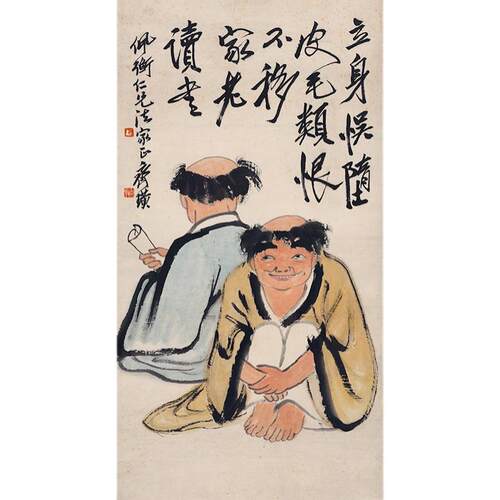 立身悞墮
皮毛類恨
不移
家老
讀書
佩衡仁兄法家正齊璜